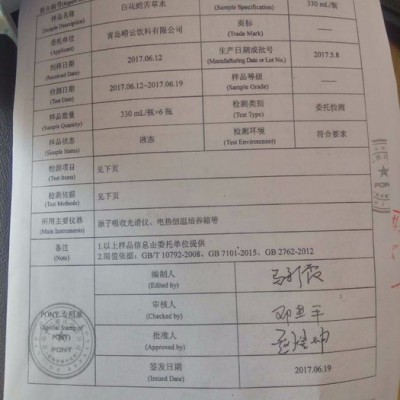 样品名称 白花蛇舌草水 330 mL/瓶
(Sample Description) (Sample Specification)
委托单位 青岛崂云饮料有限公司 商标
(Applicant) (Trade Mark)
到样日期 2017.06.12 生产日期或批号 2017.5.8
(Received Date) (Manufacturing Date or Lot No.)
检测日期 2017.06.12~2017.06.19 样品等级
(Test Date) (Sample Grade)
样品数量 330 mL/瓶×6 瓶 检测类别 委托检测
(Sample Quantity) (Test Type)
样品状态 液态 检测环境 符合要求
(Sample Status) (Test Environment)
检测项目 见下页
(Test Items)
检测依据 见下页
(Test Methods)
所用主要仪器 原子吸收光谱仪、电热恒温培养箱等
(Main Instruments)
备注 1.以上样品信息由委托单位提供
(Note) 2.限值依据:GB/T 10792-2008、GB 7101-2015、GB 2762-2012
编制人
(Edited by)
审核人
(Checked by)
PONY 专用章
(Special Stamp of
PONY)
PONY
批准人
(Approved by)
签发日期 2017.06.19
(Issued Date)
PON